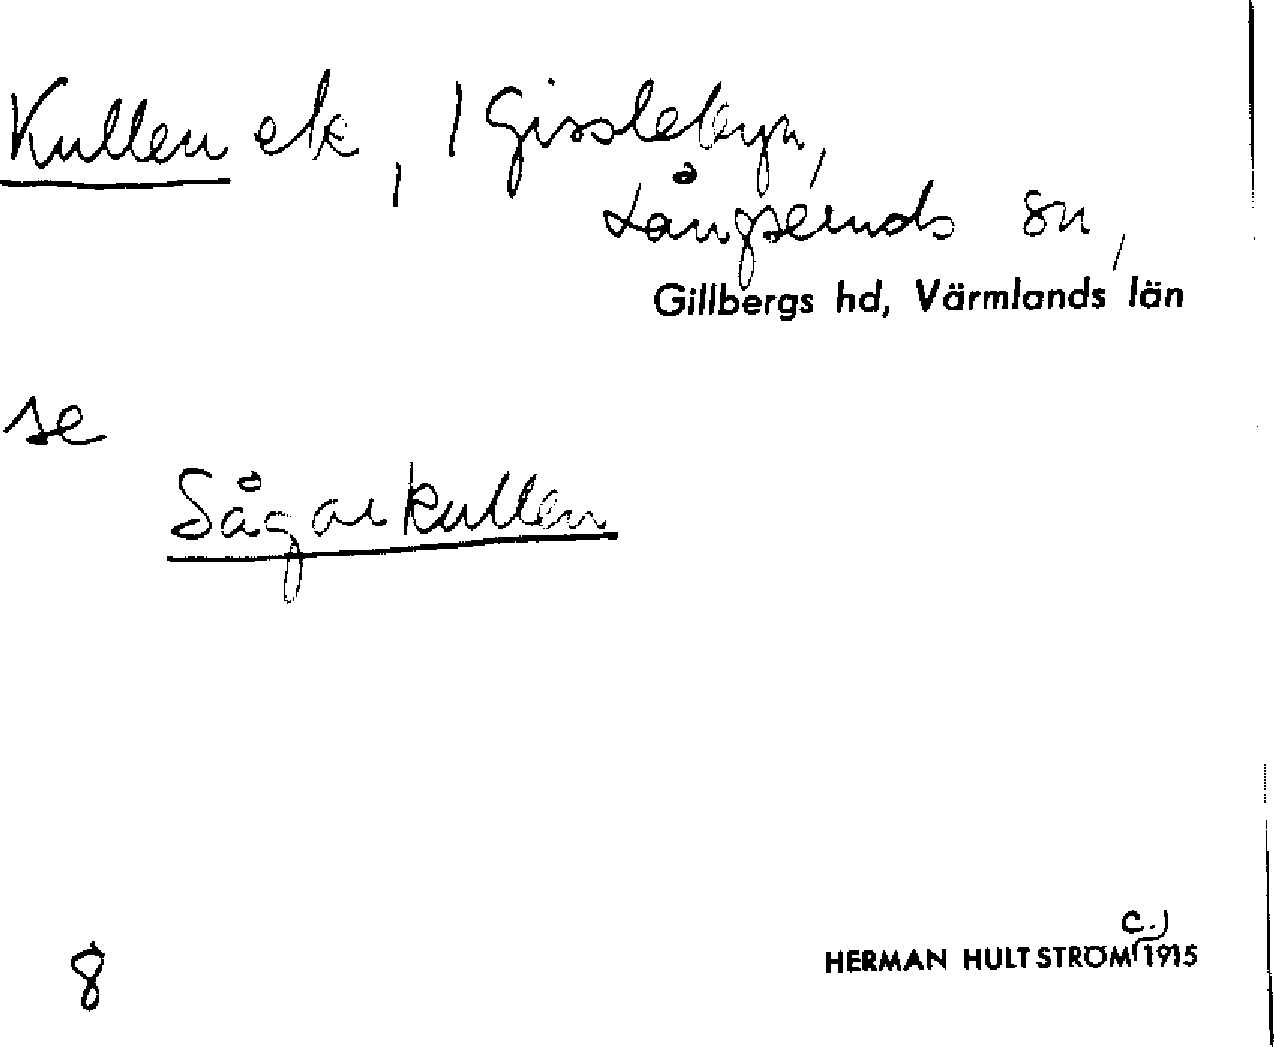 Kullen elr, 1 Gisslebyn,
Långseruds sn,
Gillbergs hd, Värmlands län
se
Sågarkullen
8
c.)
HERMAN HULTSTRÖM 1915